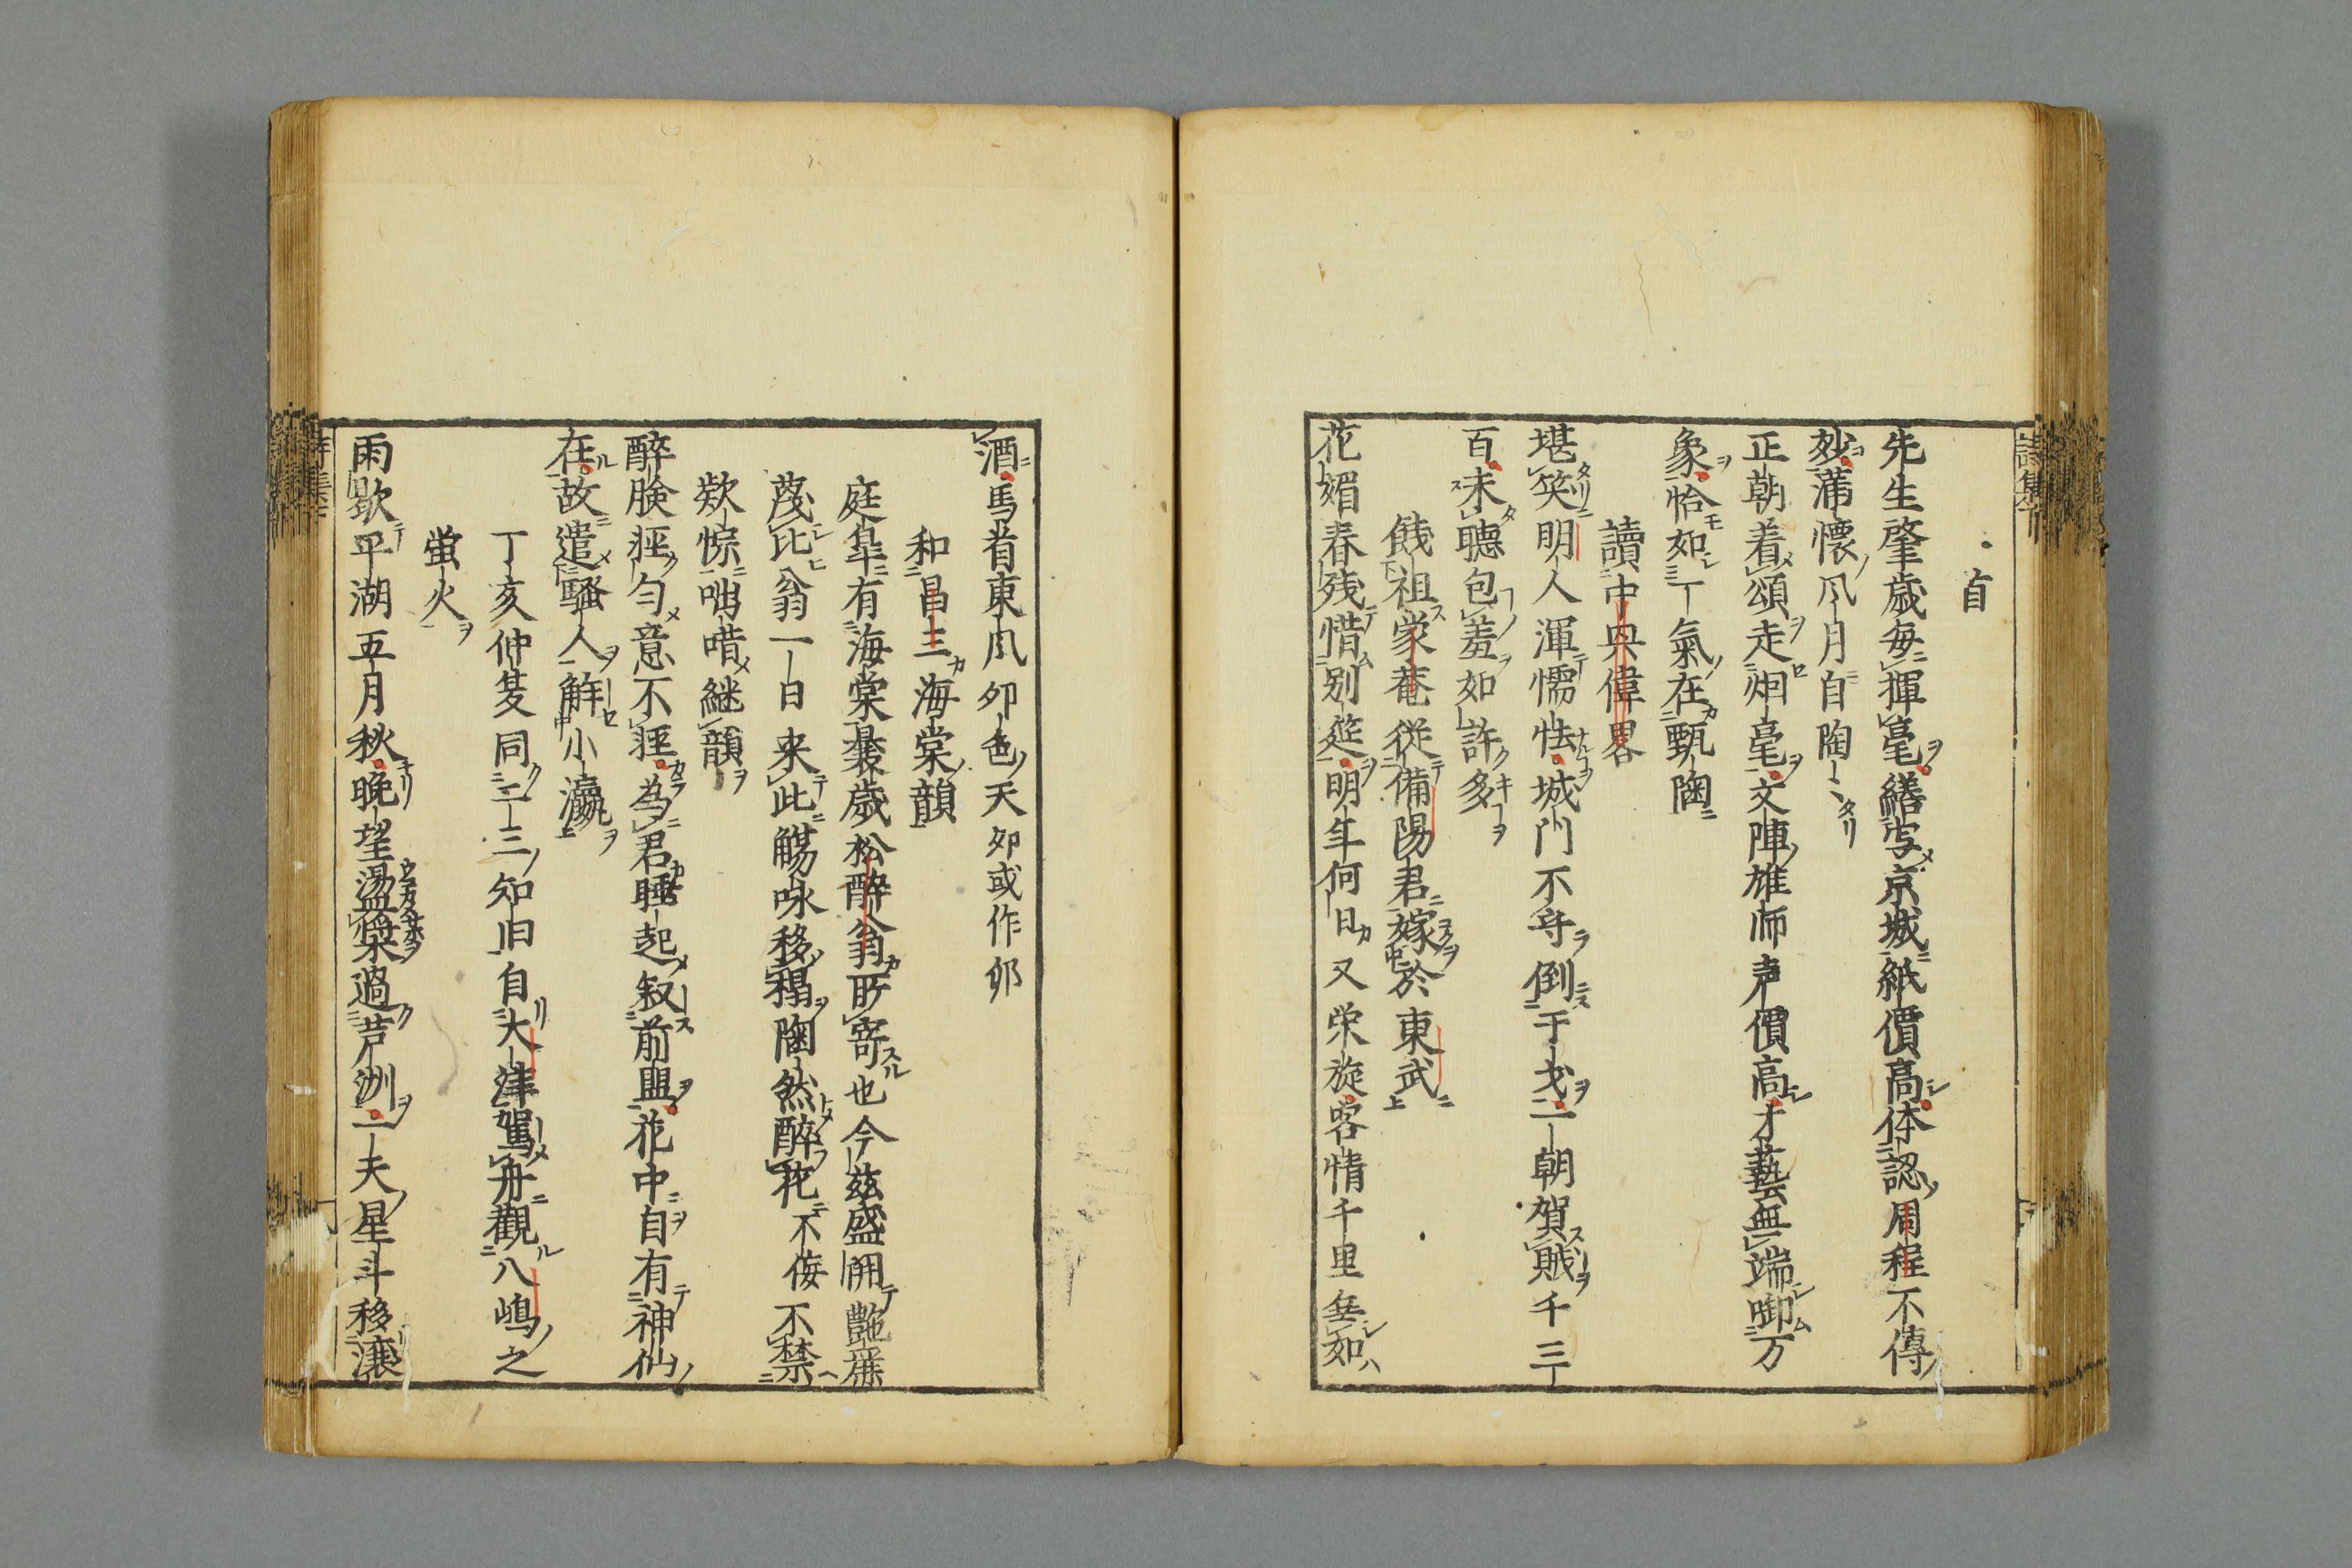 首
先生肇歳毎揮毫繕写京城紙價高体認周程不傳
妙蒲懐凩月自陶〻
正朝着頌走烟毫文陣雄师声價高才藝無端啣万
象恰如一氣在甄陶
讀中臾偉畧
堪笑明人渾懦怯城門不守倒于戈一朝賀賊千三
百未聴包羞如許多
餞祖蒙菴從備陽君嫁於東武
花媚春残惜别筵明年何日又栄旋客情千里無如
酒馬首東凨夘色天夘或作夘
和昌三海棠韻
庭皐有海棠曩歳松醉翁所寄也今茲盛開艶麗
茂比翁一日来此觴咏移榻陶然醉花不侮不禁
歎悰咄嗟継韻
醉臉經匀意不經為君睡起叙前盟花中自有神仙
在故遣騒人觧小瀛
丁亥仲夏同二三知旧自大津駕舟觀八嶋之
蛍火
雨歇平湖五月秋晩望盪槳過芦洲一天星斗移瀼